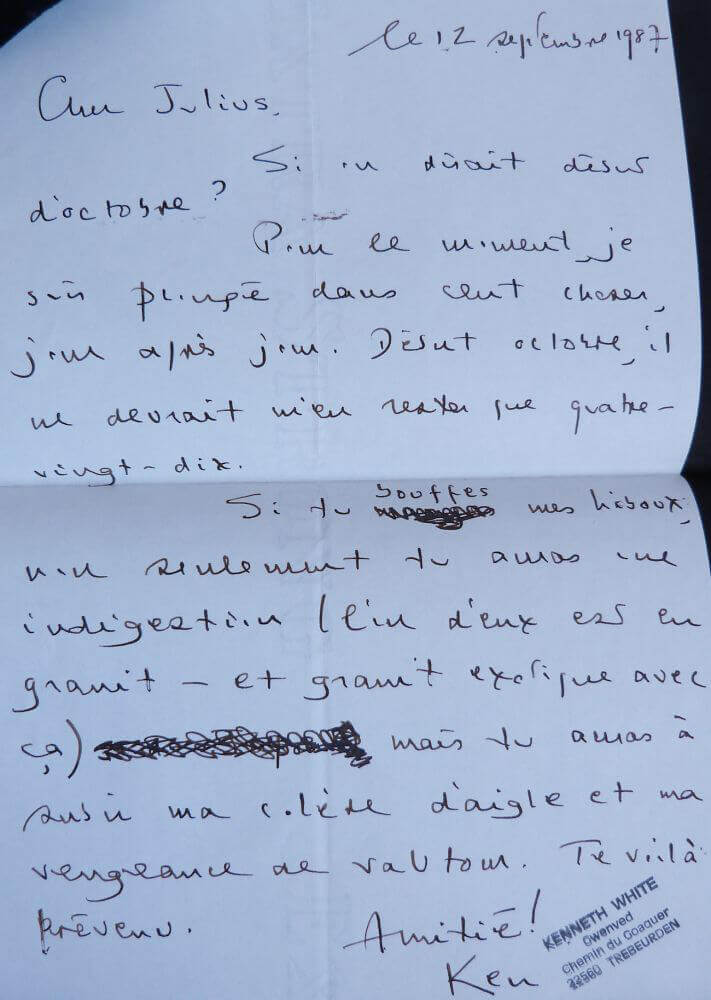 le 12 septembre 1987
Cher Julius,
Si on disait début
d'octobre ?
Pour le moment, je
suis plongé dans cent choses,
jour après jour. Début octobre, il
ne devrait m'en rester que quatre-
vingt-dix.
Si tu bouffes mes hiboux,
non seulement tu auras une
indigestion (l'un d'eux est en
granit - et granit exotique avec
ça) mais tu auras à
subir ma colère d'aigle et ma
vengeance de vautour. Te voilà
prévenu.
Amitié!
Ken
KENNETH WHITE
Gwenved
Chemin du Goaquer
22560 TREBEURDEN